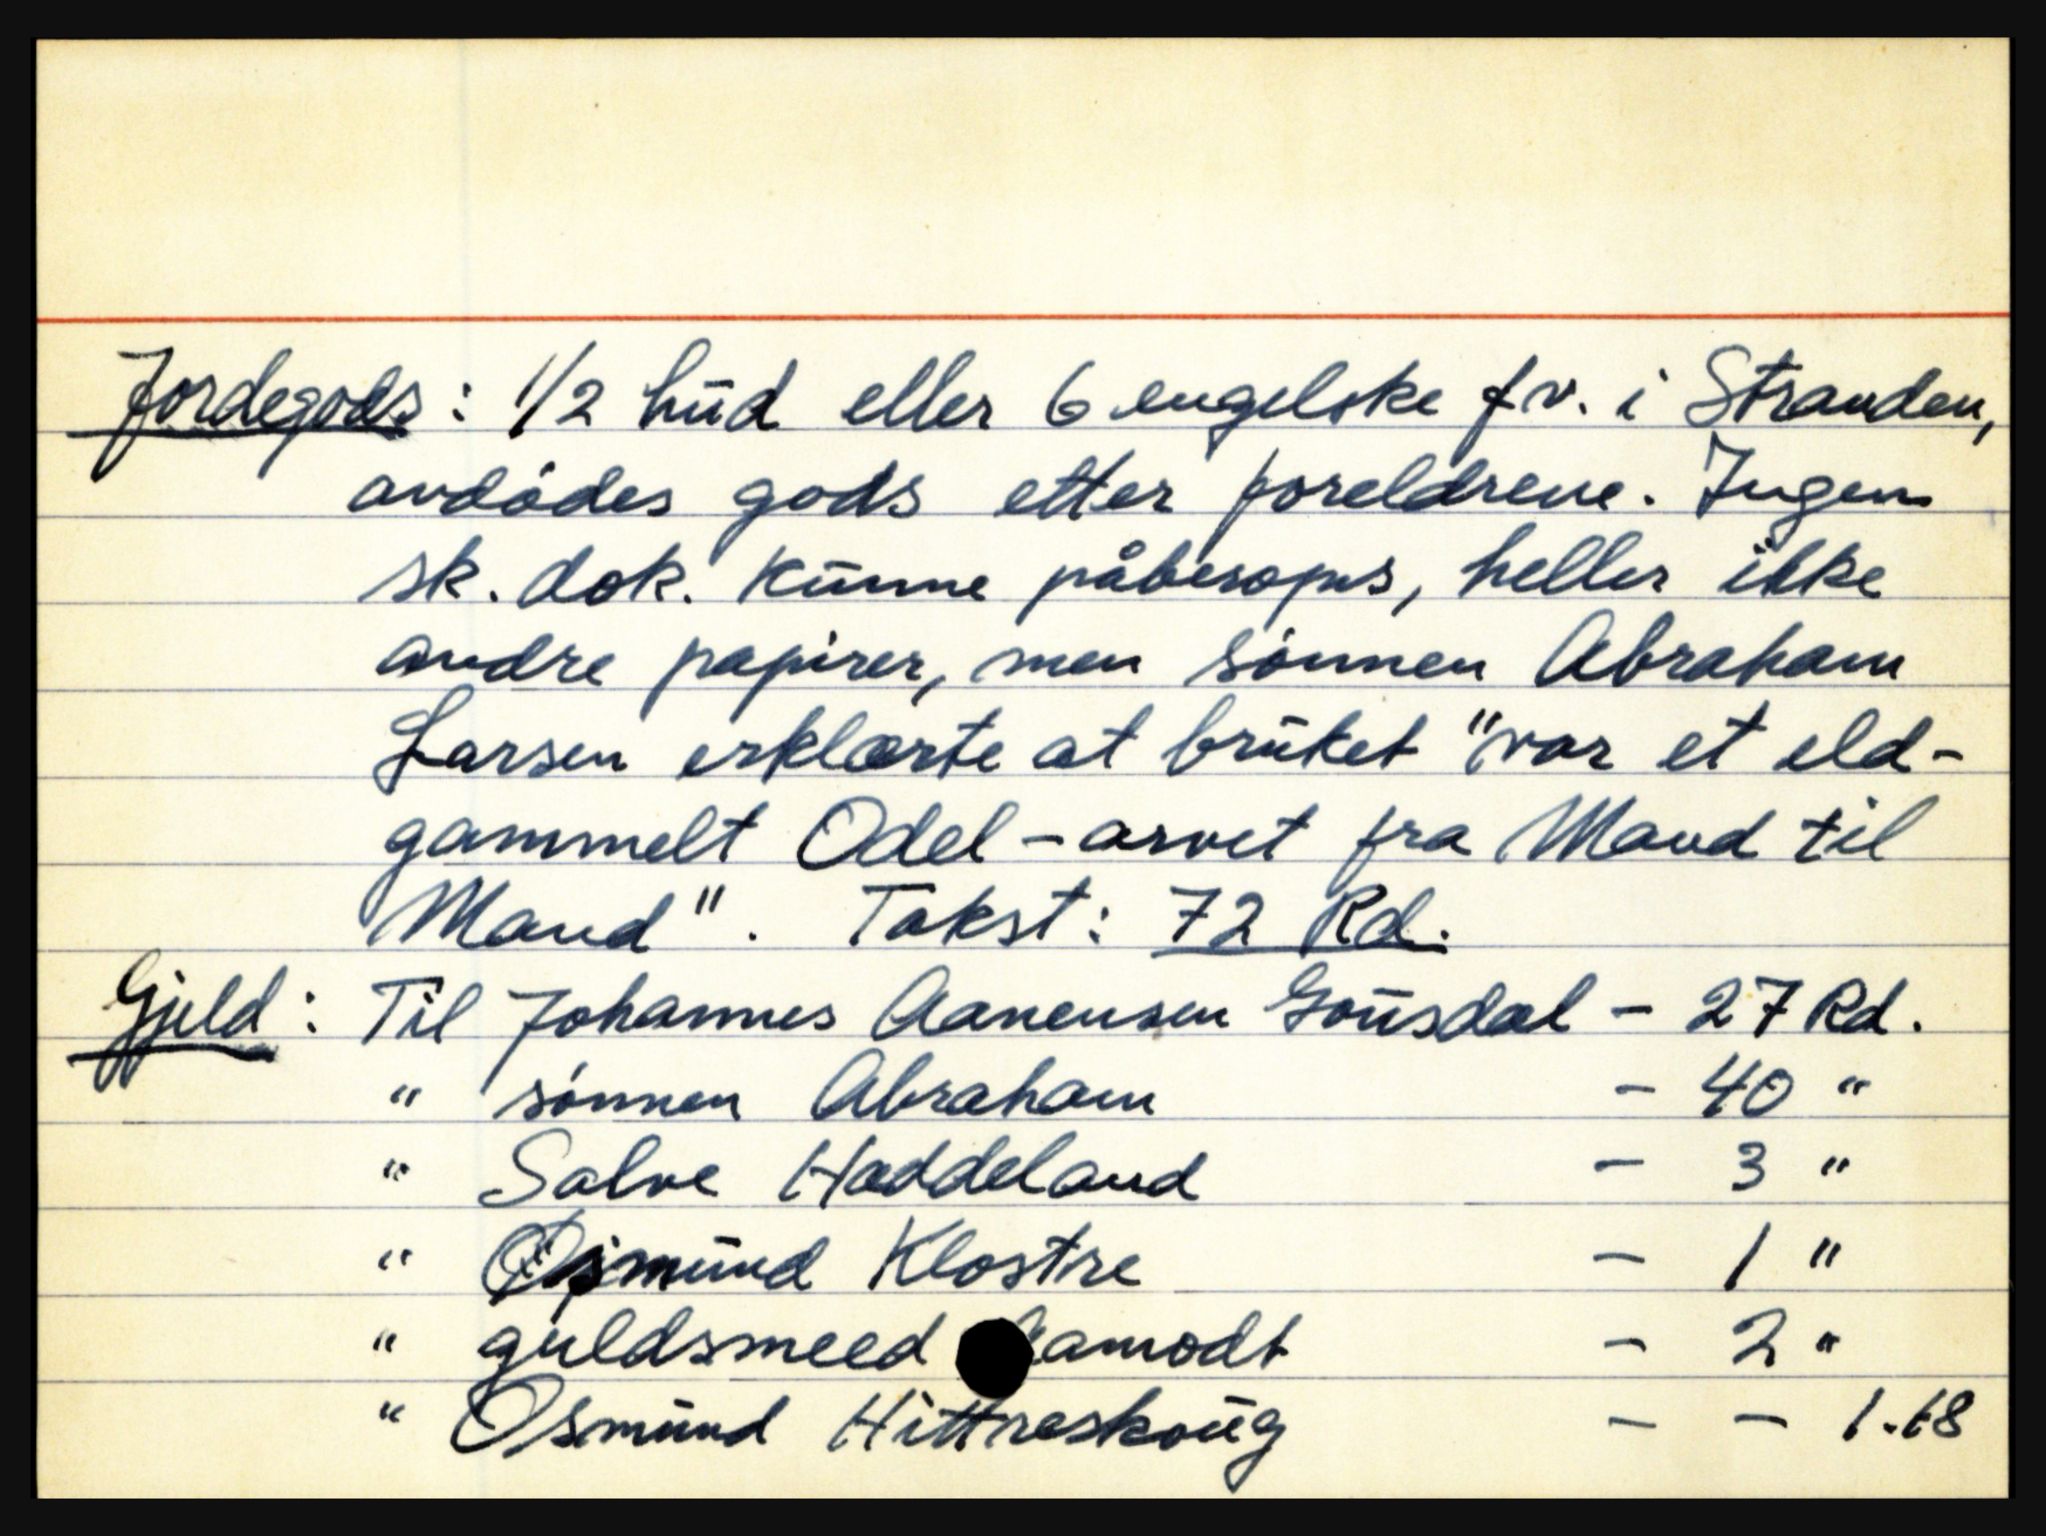 Jordegods: 1/2 hud eller 6 engelske f v. i Stranden,
avdødes gods etter foreldrene. Ingen
sk. dok. kunne påberopes, heller ikke
andre papirer, men sønnen Abraham
Larsen erklærte at bruket "var et eld-
gammelt Odel - arvet fra Mand til
Mand". Takst: 72 Rd.
Gjeld: Til Johannes Aanensen Gousdal - 27 Rd.
" sønnen Abraham - 40 "
" Salve Hæddeland - 3 "
" Osmund Klostre - 1 "
" guldsmeed - 2 "
" Osmund Hittreskoug - - 1.18